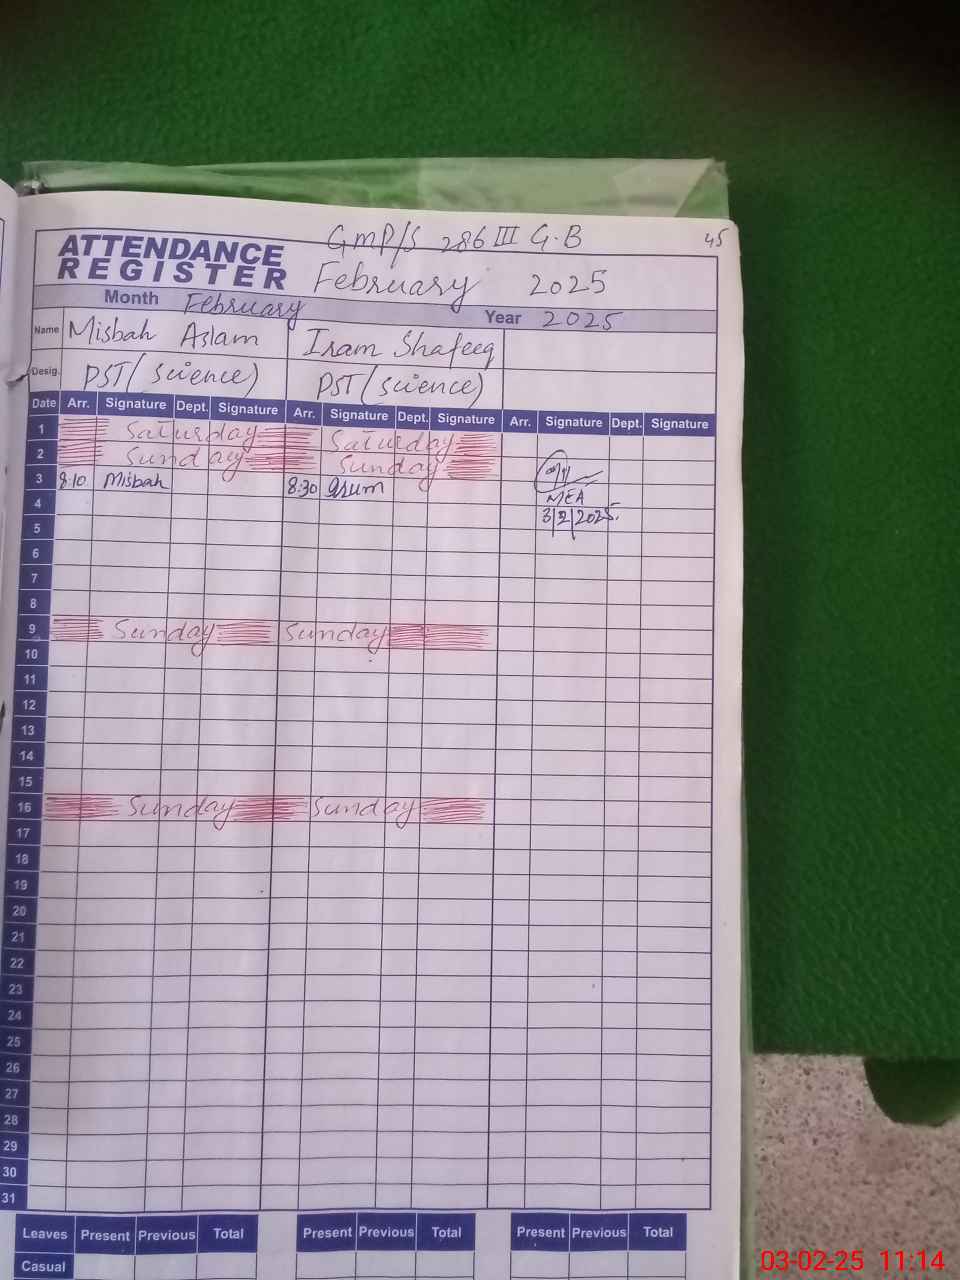 GMP/S 286 III G.B 45
ATTENDANCE
REGISTER
February 2025
Month February Year 2025
Name Misbah Aslam Iram Shafeeq
Desig. PST (science) PST (science)
Date Arr. Signature Dept. Signature Arr. Signature Dept. Signature Arr. Signature Dept. Signature
1 Saturday Saturday
2 Sunday Sunday
3 8:10 Misbah 8:30
4 MEA
5 3/2/2025.
6
7
8
9 Sunday Sunday
10
11
12
13
14
15
16 Sunday Sunday
17
18
19
20
21
22
23
24
25
26
27
28
29
30
31
Leaves Present Previous Total Present Previous Total Present Previous Total
Casual
03-02-25 11:14